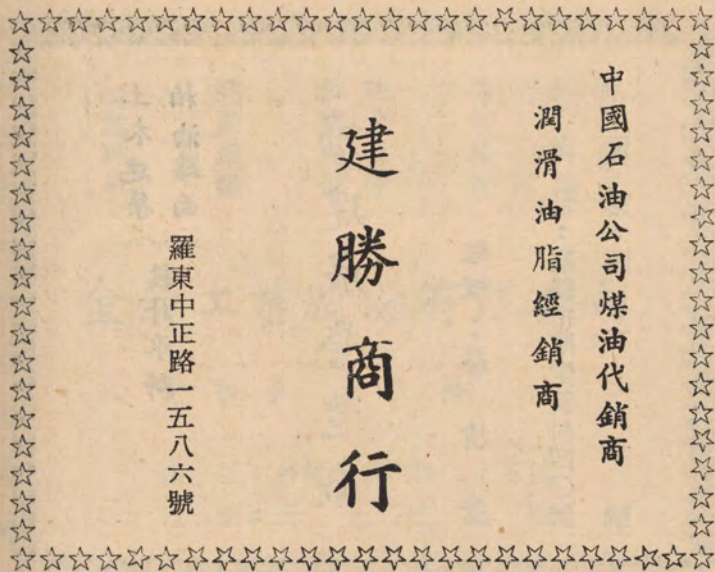 中國石油公司煤油代銷商
潤滑油脂經銷商
建勝商行
羅東中正路一五八六號